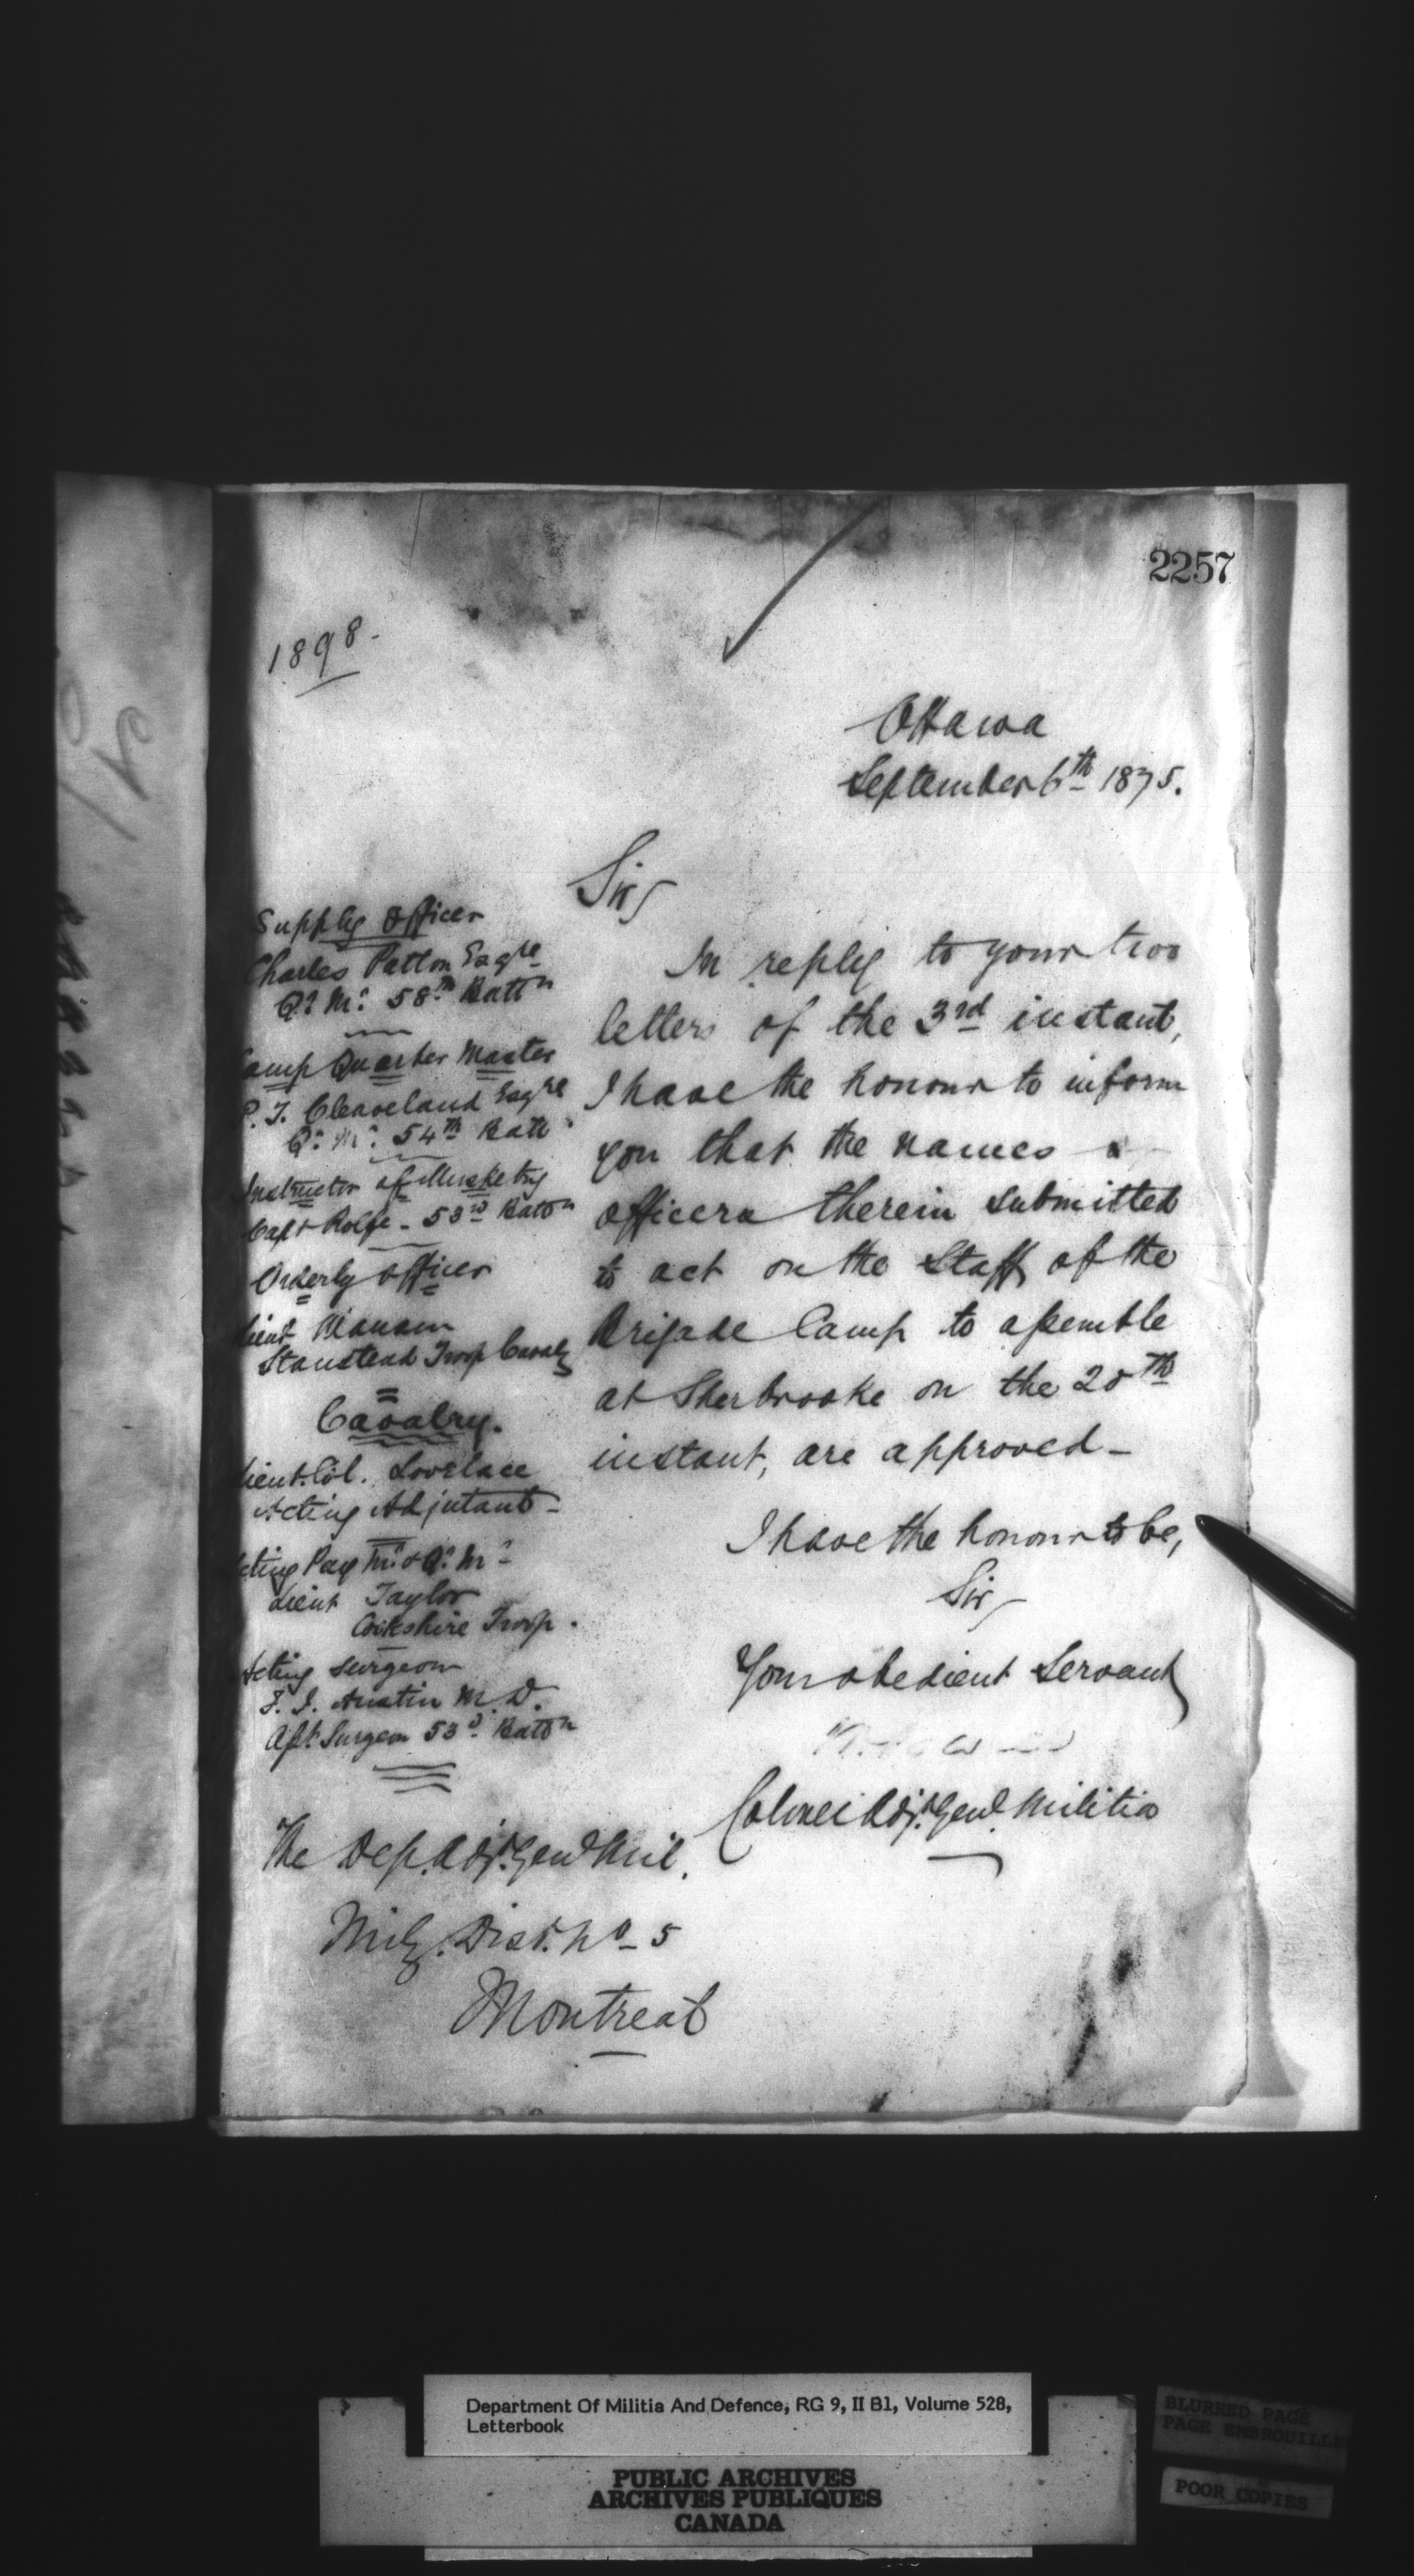 2257
1898-
Ottawa
September 6th 1875.
Sir,
In reply to your two
letters of the 3rd instant,
I have the honour to inform
you that the names &
officers therein submitted
to act on the Staff of the
Brigade Camp to assemble
at Sherbrooke on the 20th
instant, are approved-
I have the honour to be,
Sir
Your obedient Servant
Colonel Adjt. Genl. Militia
Supply Officer
Charles Patton Esqre
Qr. Mr. 58th Battn
Camp Quarter Master
P. T. Cleaveland Esqre
Qr. Mr. 54th Batt
Instructor of Musketry
Capt Rolfe - 53rd Battn
Orderly Officer
Lieut
Stanstead Troop Cavaly
Cavalry.
Lieut. Col. Lovelace
Acting Adjutant-
Acting Pay Mr. & Qr. Mr.
Lieut Taylor
Cookshire Troop.
Acting Surgeon
F. J. Austin M.D.
Asst. Surgeon 53d. Battn
The Dep. Adjt. Genl Mil.
Mily. Dist. No- 5
Montreal
Department Of Militia And Defence, RG 9, II B1, Volume 528,
Letterbook
PUBLIC ARCHIVES
ARCHIVES PUBLIQUES
CANADA
BLURRED PAGE
PAGE EMBROUILLE
POOR COPIES